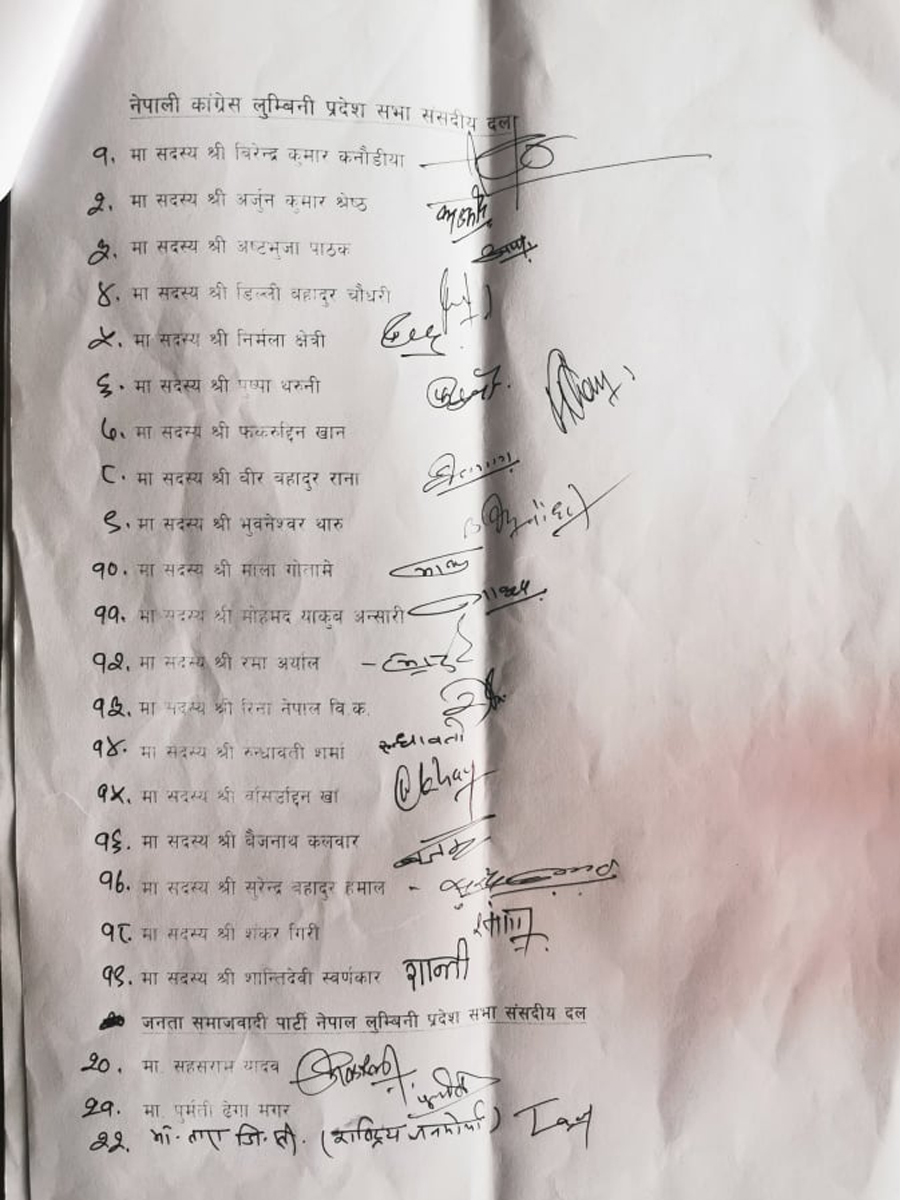 नेपाली कांग्रेस लुम्बिनी प्रदेश सभा संसदीय दल
१. मा सदस्य श्री बिरेन्द्र कुमार कनौडीया
२. मा सदस्य श्री अर्जुन कुमार श्रेष्ठ
३. मा सदस्य श्री अष्टभुजा पाठक
४. मा सदस्य श्री डिल्ली बहादुर चौधरी
५. मा सदस्य श्री निर्मला क्षेत्री
६. मा सदस्य श्री पुष्पा थरुनी
७. मा सदस्य श्री फकरुद्दिन खान
८. मा सदस्य श्री वीर बहादुर राना
९. मा सदस्य श्री भुवनेश्वर थारु
१०. मा सदस्य श्री माला गोतामे
११. मा सदस्य श्री मोहमद याकुब अन्सारी
१२. मा सदस्य श्री रमा अर्याल
१३. मा सदस्य श्री रिना नेपाल वि.क.
१४. मा सदस्य श्री रुन्धावती शर्मा रुन्धावती
१५. मा सदस्य श्री वसिउद्दिन खां
१६. मा सदस्य श्री बैजनाथ कलवार
१७. मा सदस्य श्री सुरेन्द्र बहादुर हमाल
१८. मा सदस्य श्री शंकर गिरी
१९. मा सदस्य श्री शान्तिदेवी स्वर्णकार शान्ती
जनता समाजवादी पार्टी नेपाल लुम्बिनी प्रदेश सभा संसदीय दल
२०. मा. सहसराम यादव
२१. मा. पुर्मती ढेगा मगर
२२. मा. तारा जि.सी. (राष्ट्रिय जनमोर्चा) Tara